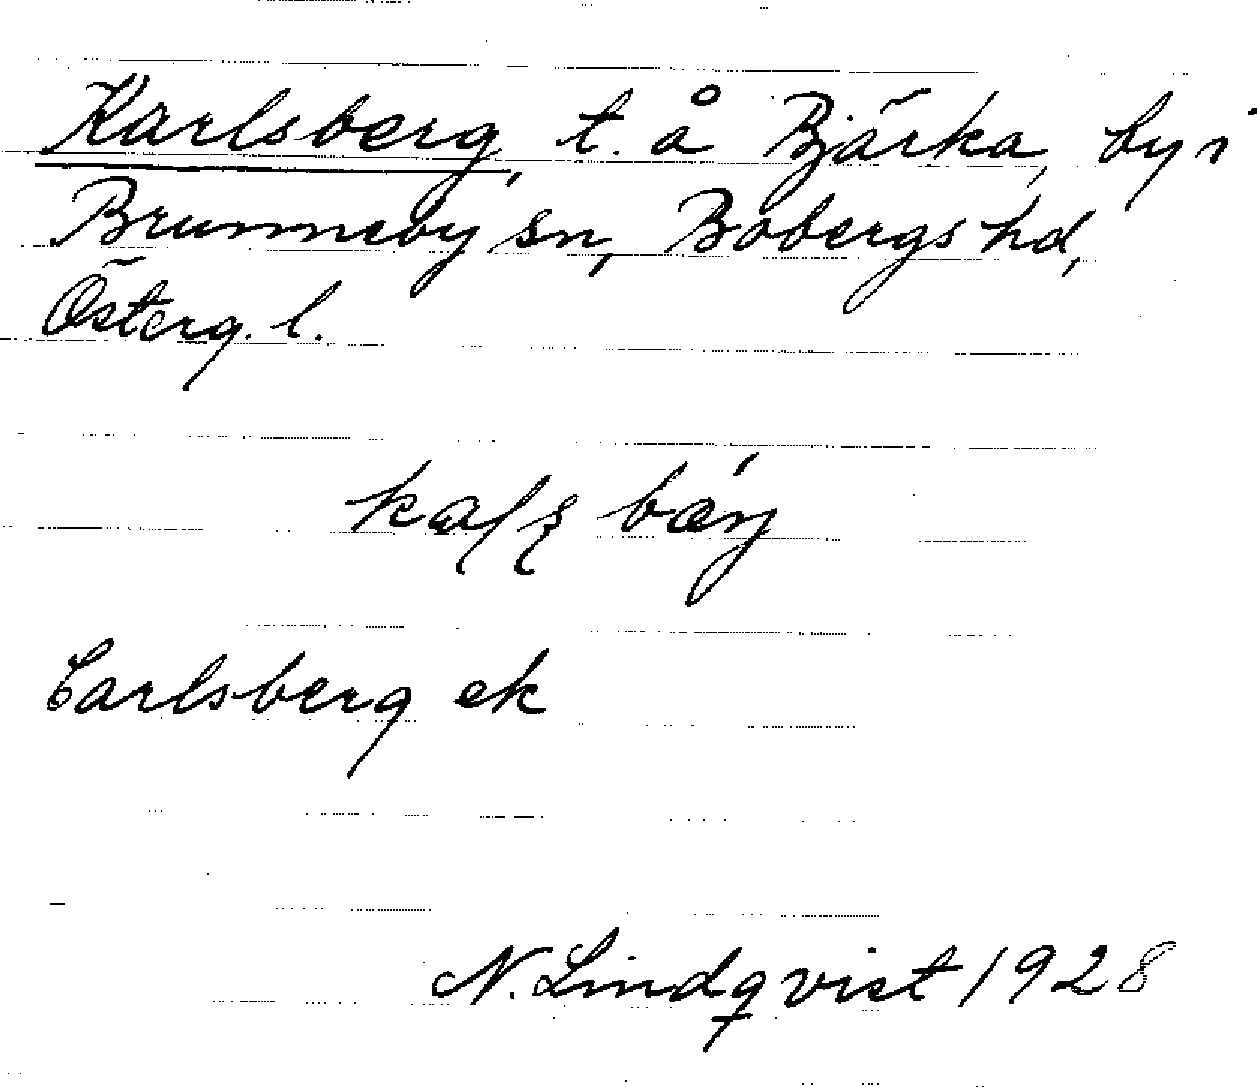 Karlsberg, t. å Bjärka, by i
Brunneby sn, Bobergs hd,
Österg. l.
Carlsberg ek
N. Lindqvist 1928